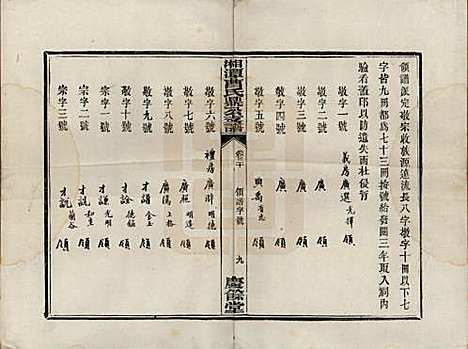 領譜派定敬宗收族源遠流長八字敬字十冊以下七
字皆九冊都為七十三冊挨號給發閱三年取入祠內
驗看蓋印以防遺失而杜侵冒
敬字一號 義房廣選 光擇 領
敬字二號 廣 領
敬字三號 廣 領
敬字四號 廣 領
敬字五號 興禹 領
湘潭曹氏鼎公支譜
卷三十
領譜字號
九
慶餘堂
敬字六號 禮房廣 明德 領
敬字七號 廣 明道 領
敬字八號 廣 上格 領
敬字九號 才謙 金玉 領
敬字十號 才詮 德福 領
宗字一號 才 光明 領
宗字二號 才說 和生 領
宗字三號 才說 蘭谷 領